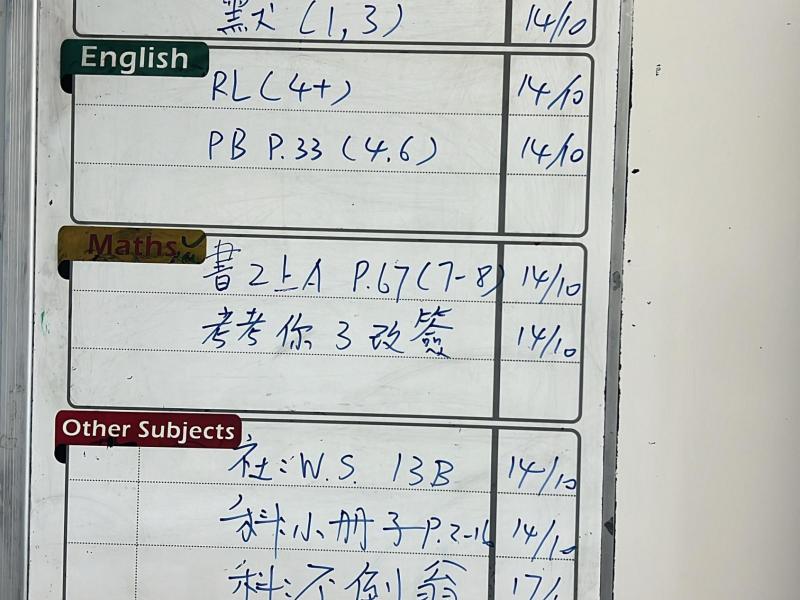 默(1,3) 14/10
English
RL(4+) 14/10
PB P.33 (4.6) 14/10
Maths
書2上A P.67(7-8) 14/10
考考你3改簽 14/10
Other Subjects
社:W.S. 13B 14/10
科小册子P.2-16 14/10
科:不倒翁 17/